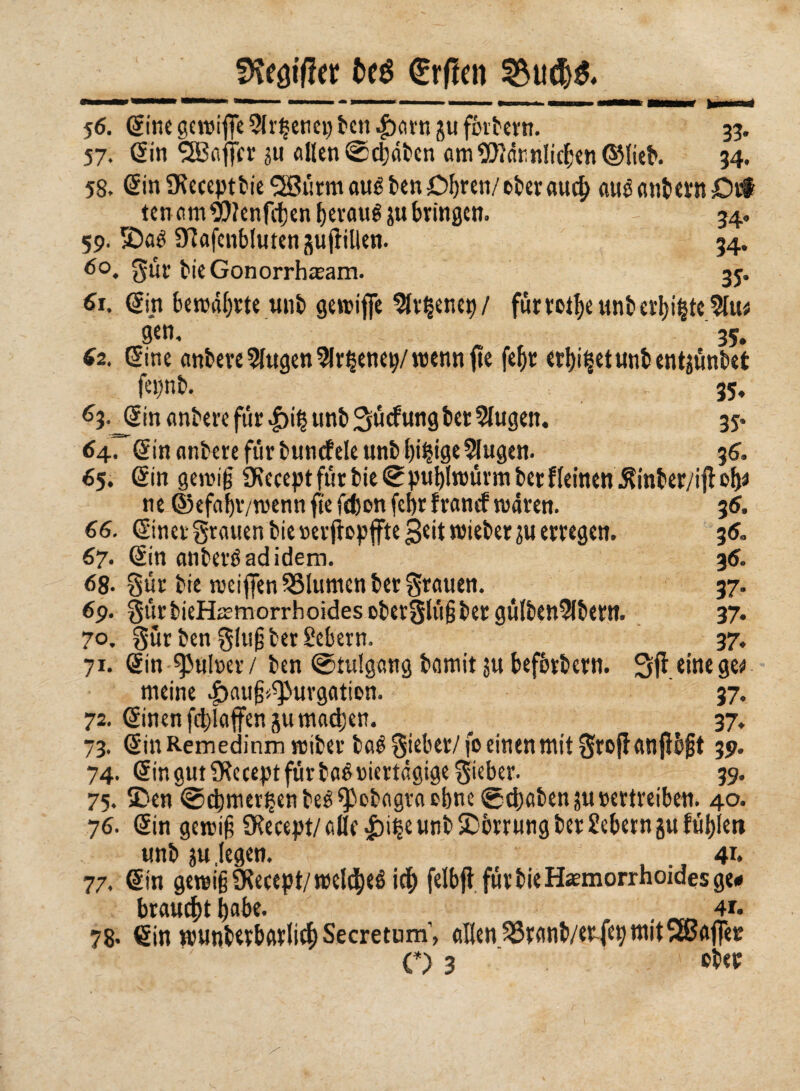 Register des Ersten Buchs.
56. Eine gewisse Artzeney den Harn zu fördern. 33.
57. Ein Wasser zu allen Schäden am Männlichen Glied. 34.
58. Ein Recept die Würm aus den Ohren/ oder auch aus andern Or⸗
ten am Menschen heraus zu bringen. 34.
59. Das Nasenbluten zu stillen. 34.
60. Für die Gonorrhæam. 35.
61. Ein bewährte und gewisse Artzeney/ für rothe und erhitzte Au⸗
gen. 35.
62. Eine andere Augen Artzeney/ wenn sie sehr erhitzet und entzündet
seynd. 35.
63. Ein andere für Hitz und Zückung der Augen. 35.
64. Ein andere für dunckele und hitzige Augen. 36.
65. Ein gewiß Recept für die Spuhlwürm der kleinen Kinder/ist oh⸗
ne Gefahr/wenn sie schon sehr kranck wären. 36.
66. Einer Frauen die verstopffte Zeit wieder zu erregen. 36.
67. Ein anders ad idem. 36.
68. Für die weissen Blumen der Frauen. 37.
69. Für die Hæmorrhoides oder Flüß der gülden Adern. 37.
70. Für den Fluß der Lebern. 37.
71. Ein Pulver/ den Stulgang damit zu befördern. Ist eine ge⸗
meine Hauß⸗Purgation. 37.
72. Einen schlaffen zu machen. 37.
73. Ein Remedinm wider das Fieber/ so einen mit Frost anstößt 39.
74. Ein gut Recept für das viertägige Fieber. 39.
75. Den Schmertzen des Podagra ohne Schaden zu vertreiben. 40.
76. Ein gewiß Recept/ alle Hitze und Dörrung der Lebern zu kühlen
und zu legen. 41.
77. Ein gewiß Recept/ welches ich selbst für die Hæmorrhoides ge⸗
braucht habe. 41.
78. Ein wunderbarlich Secretum, allen Brand/er sey mit Wasser
(*) 3 oder